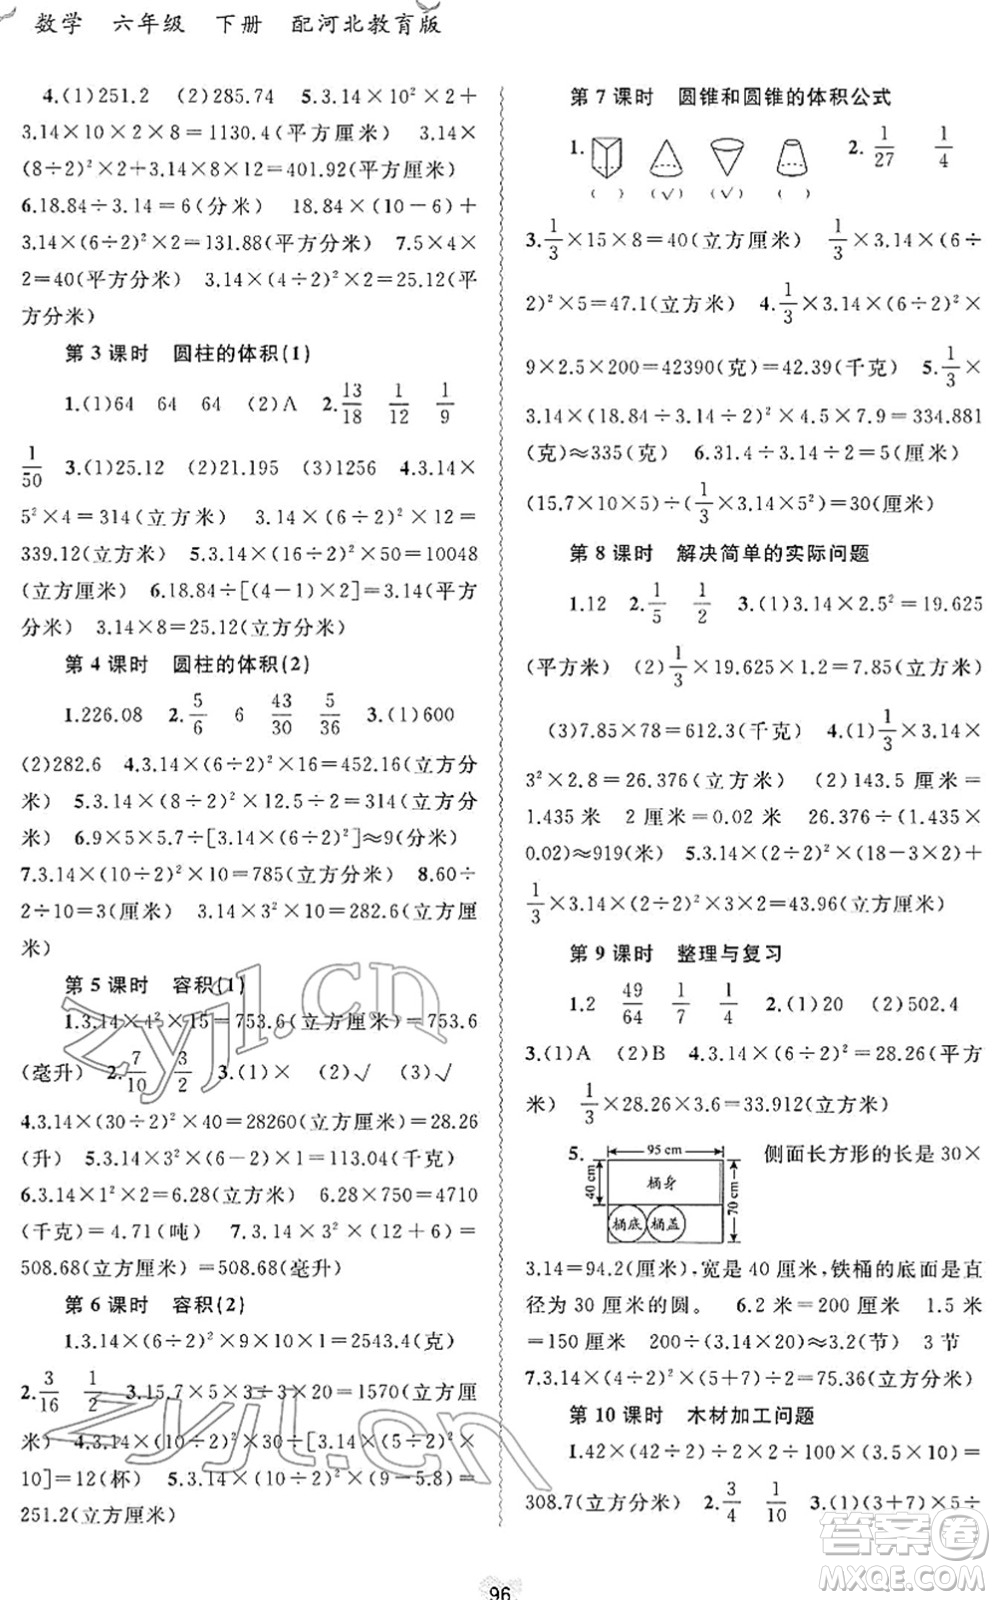 数学 六年级 下册 配河北教育版
4.(1)251.2 (2)285.74 5.3.14×10²×2+
3.14×10×2×8=1130.4(平方厘米) 3.14×
(8÷2)²×2+3.14×8×12=401.92(平方厘米)
6.18.84÷3.14=6(分米) 18.84×(10-6)+
3.14×(6÷2)²×2=131.88(平方分米) 7.5×4×
2=40(平方分米) 3.14×(4÷2)²×2=25.12(平
方分米)
第 3 课时 圆柱的体积(1)
1.(1)64 64 64 (2)A 2.13/18 1/12 1/9
1/50 3.(1)25.12 (2)21.195 (3)1256 4.3.14×
5²×4=314(立方米) 3.14×(6÷2)²×12=
339.12(立方米) 5.3.14×(16÷2)²×50=10048
(立方厘米) 6.18.84÷[(4-1)×2]=3.14(平方
分米) 3.14×8=25.12(立方分米)
第 4 课时 圆柱的体积(2)
1.226.08 2.5/6 6 43/30 5/36 3.(1)600
(2)282.6 4.3.14×(6÷2)²×16=452.16(立方分
米) 5.3.14×(8÷2)²×12.5÷2=314(立方分
米) 6.9×5×5.7÷[3.14×(6÷2)²]≈9(分米)
7.3.14×(10÷2)²×10=785(立方分米) 8.60÷
2÷10=3(厘米) 3.14×3²×10=282.6(立方厘
米)
第 5 课时 容积(1)
1.3.14×4²×15=753.6(立方厘米)=753.6
(毫升) 2.7/10 3/2 3.(1)× (2)√ (3)√
4.3.14×(30÷2)²×40=28260(立方厘米)=28.26
(升) 5.3.14×3²×4=113.04(千克)
6.3.14×1²×2=6.28(立方米) 6.28×750=4710
(千克)=4.71(吨) 7.3.14×3²×(12+6)=
508.68(立方厘米)=508.68(毫升)
第 6 课时 容积(2)
1.3.14×(6÷2)²×9×10×1=2543.4(克)
2.3/16 1/2 3.15.7×5×2×3×20=1570(立方厘
米) 4.3.14×(10÷2)²×30÷[3.14×(5÷2)²×
10]=12(杯) 5.3.14×(6÷2)²×(9-5.8)=
251.2(立方厘米)
第 7 课时 圆锥和圆锥的体积公式
1. 2.1/27 1/4
( ) (√) (√) ( )
3.1/3×15×8=40(立方厘米) 1/3×3.14×(6÷
2)²×5=47.1(立方米) 4.1/3×3.14×(6÷2)²×
9×2.5×200=42390(克)=42.39(千克) 5.1/3×
3.14×(18.84÷3.14÷2)²×4.5×7.9=334.881
(克)≈335(克) 6.31.4÷3.14÷2=5(厘米)
(15.7×10×5)÷(1/3×3.14×5²)=30(厘米)
第 8 课时 解决简单的实际问题
1.12 2.1/5 1/2 3.(1)3.14×2.5²=19.625
(平方米) (2)1/3×19.625×1.2=7.85(立方米)
(3)7.85×78=612.3(千克) 4.(1)1/3×3.14×
3²×2.8=26.376(立方米) (2)143.5 厘米=
1.435 米 2 厘米=0.02 米 26.376÷(1.435×
0.02)≈919(米) 5.3.14×(2÷2)²×(18-3×2)+
1/3×3.14×(2÷2)²×3×2=43.96(立方厘米)
第 9 课时 整理与复习
1.2 49/64 1/7 1/4 2.(1)20 (2)502.4
3.(1)A (2)B 4.3.14×(6÷2)²=28.26(平方
米) 1/3×28.26×3.6=33.912(立方米)
5. 侧面长方形的长是 30×
95 cm
40 cm
桶身
70 cm
桶底 桶盖
3.14=94.2(厘米),宽是 40 厘米,铁桶的底面是直
径为 30 厘米的圆。 6.2 米=200 厘米 1.5 米
=150 厘米 200÷(3.14×20)≈3.2(节) 3 节
7.3.14×(4÷2)²×(5+7)÷2=75.36(立方分米)
第 10 课时 木材加工问题
1.42×(42÷2)÷2×2÷100×(3.5×10)=
308.7(立方分米) 2.3/4 1/10 3.(1)(3+7)×5÷
96
zyjl.cn
zyjl.cn
答案圈
MXQE.COM